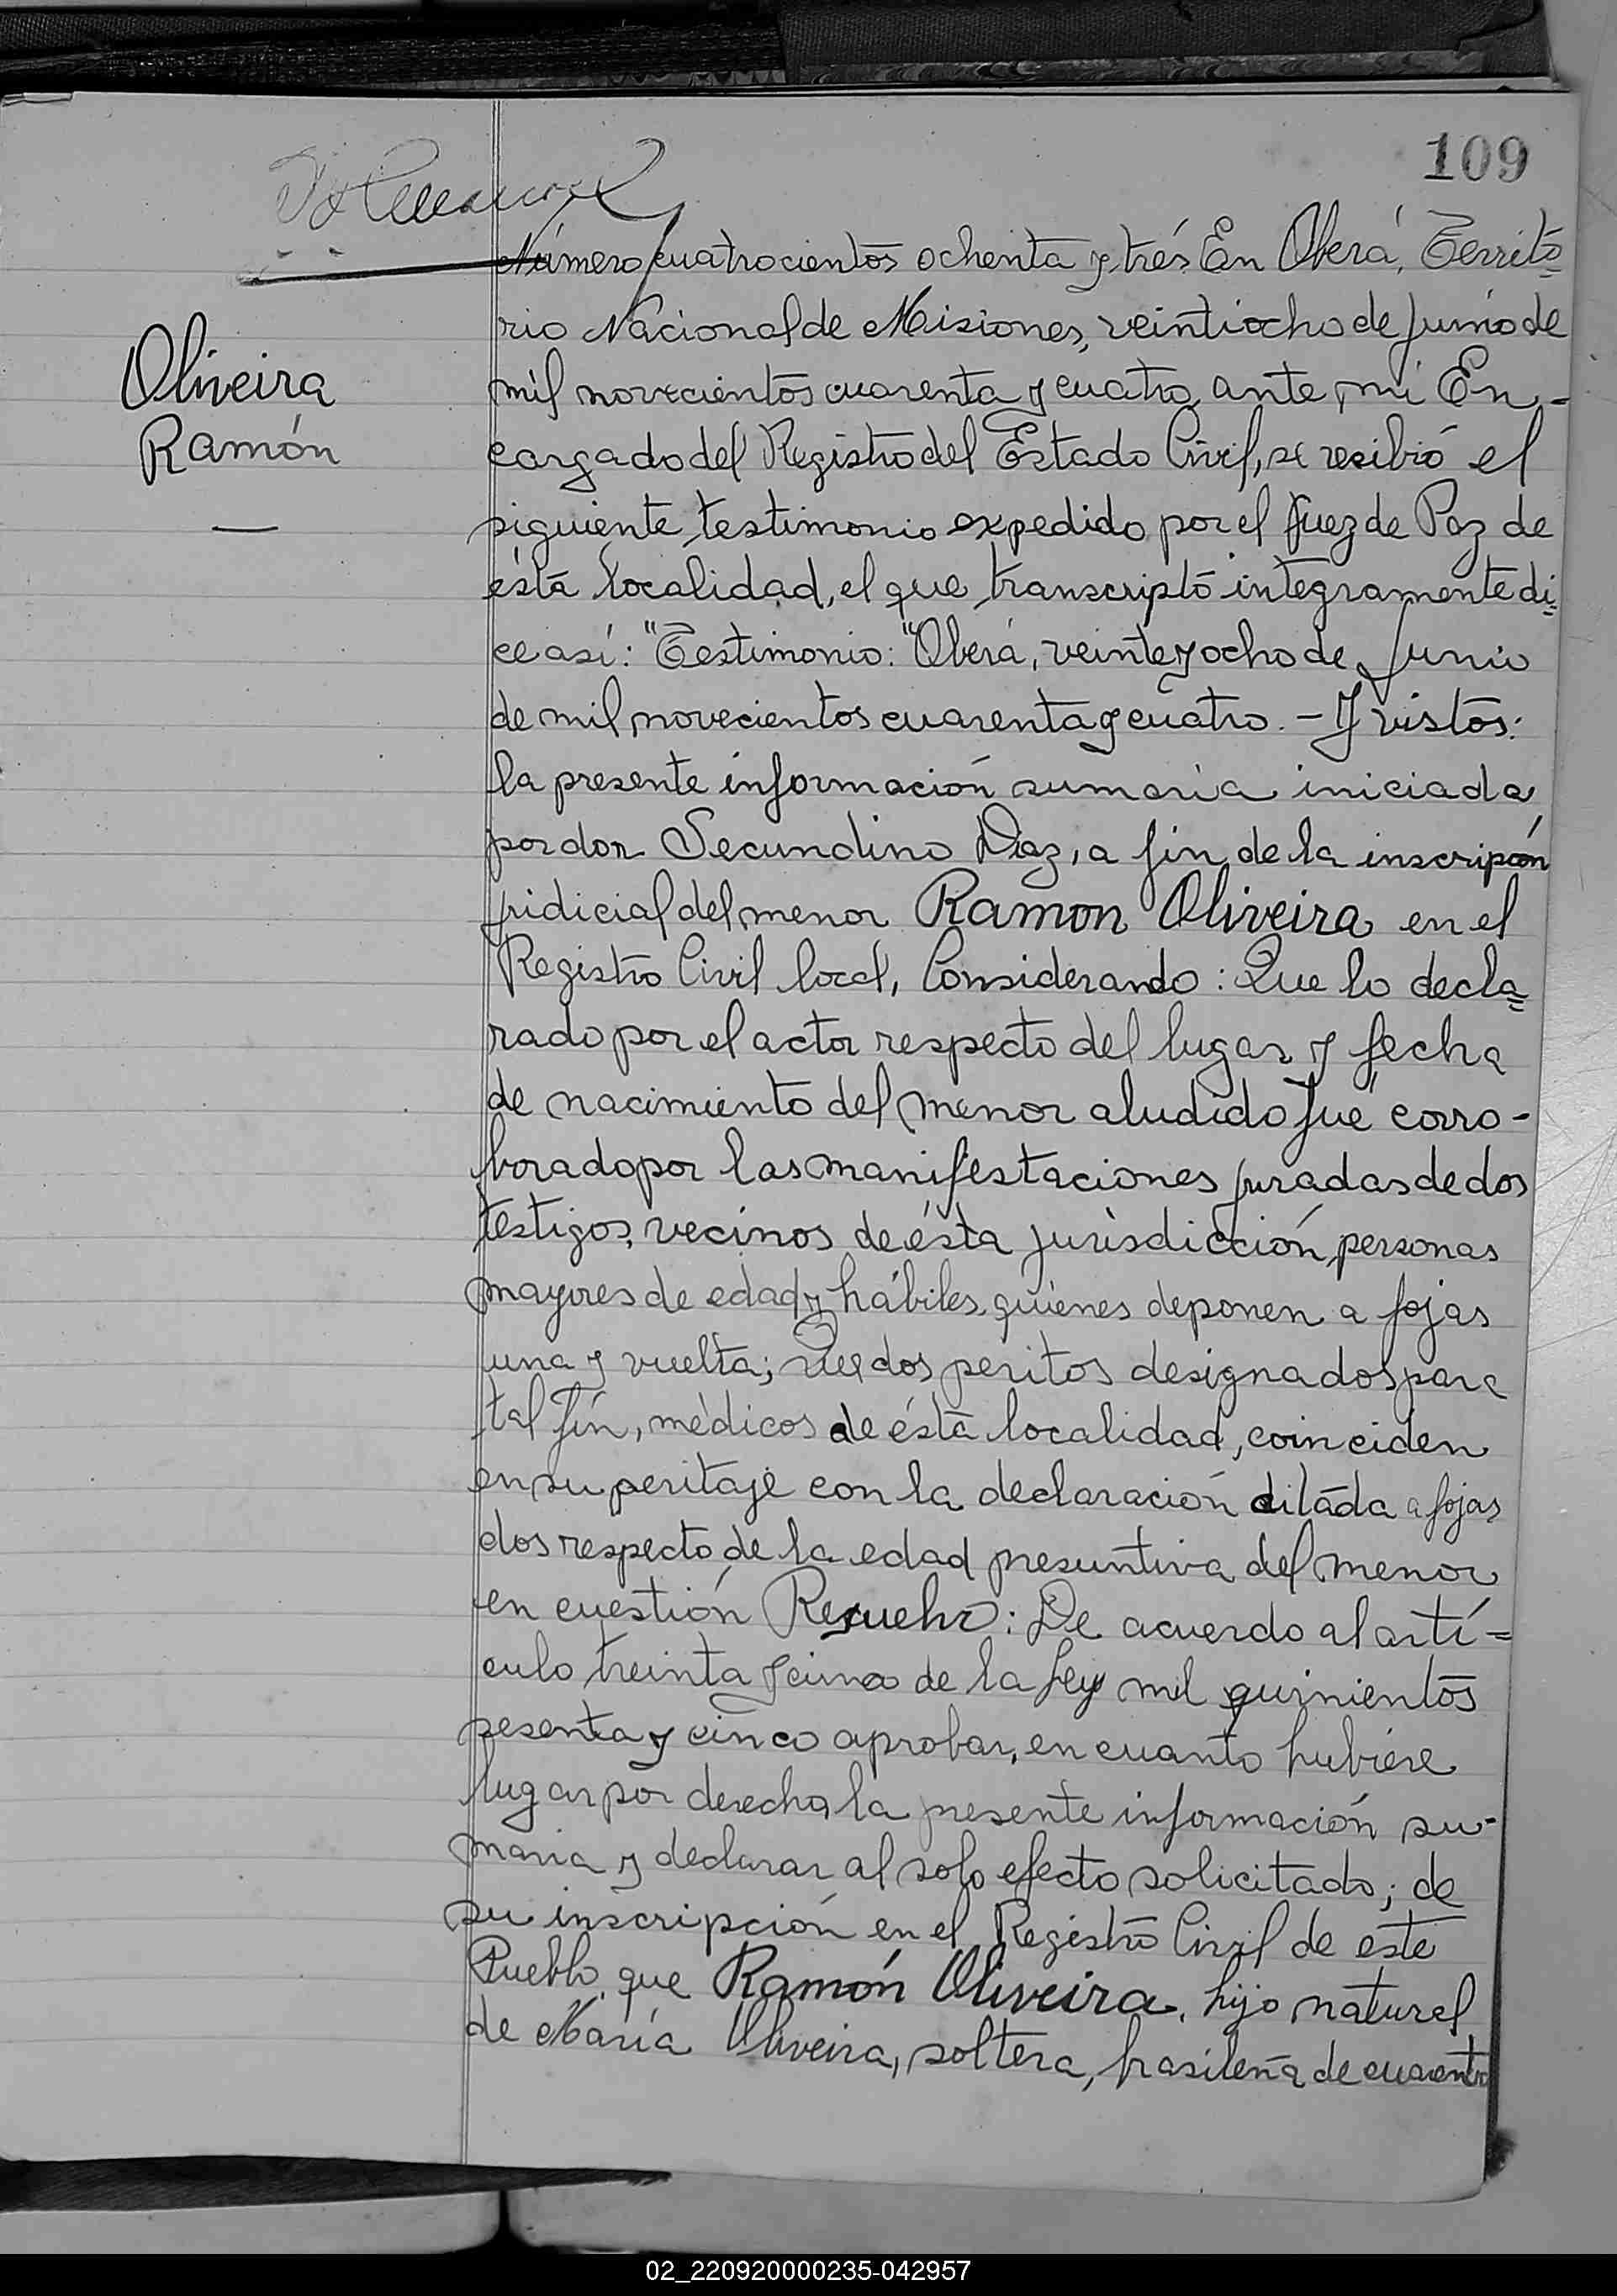 109
Número cuatrocientos ochenta y trés. En Oberá, Territo=
rio Nacional de Misiones, veintiocho de Junio de
Oliveira
Ramón
mil novecientos cuarenta y cuatro, ante mi En-
cargado del Registro del Estado Civil, se recibió el
siguiente testimonio expedido por el Juez de Paz de
ésta localidad, el que transcripto integramente di=
ce así: "Testimonio: "Oberá, veinte y ocho de Junio
de mil novecientos cuarenta y cuatro. - Y vistos:
la presente información sumaria iniciada
por don Secundino Diaz, a fin de la inscripción
judicial del menor Ramon Oliveira en el
Registro Civil local, Considerando: Que lo decla=
rado por el actor respecto del lugar y fecha
de nacimiento del menor aludido fué corro-
borado por las manifestaciones juradas de dos
testigos, vecinos de ésta jurisdicción, personas
mayores de edad y hábiles, quienes deponen a fojas
una y vuelta; Que dos peritos designados para
tal fín, médicos de ésta localidad, coinciden
en su peritaje con la declaración citada a fojas
dos respecto de la edad presuntiva del menor
en cuestión Resuelvo: De acuerdo al artí=
culo treinta y cinco de la Ley mil quinientos
sesenta y cinco aprobar, en cuanto hubiere
lugar por derecho, la presente información su-
maria y declarar al solo efecto solicitado; de
su inscripción en el Registro Civil de este
Pueblo, que Ramón Oliveira, hijo natural
de María Oliveira, soltera, brasileña de cuarenta
02_220920000235-042957